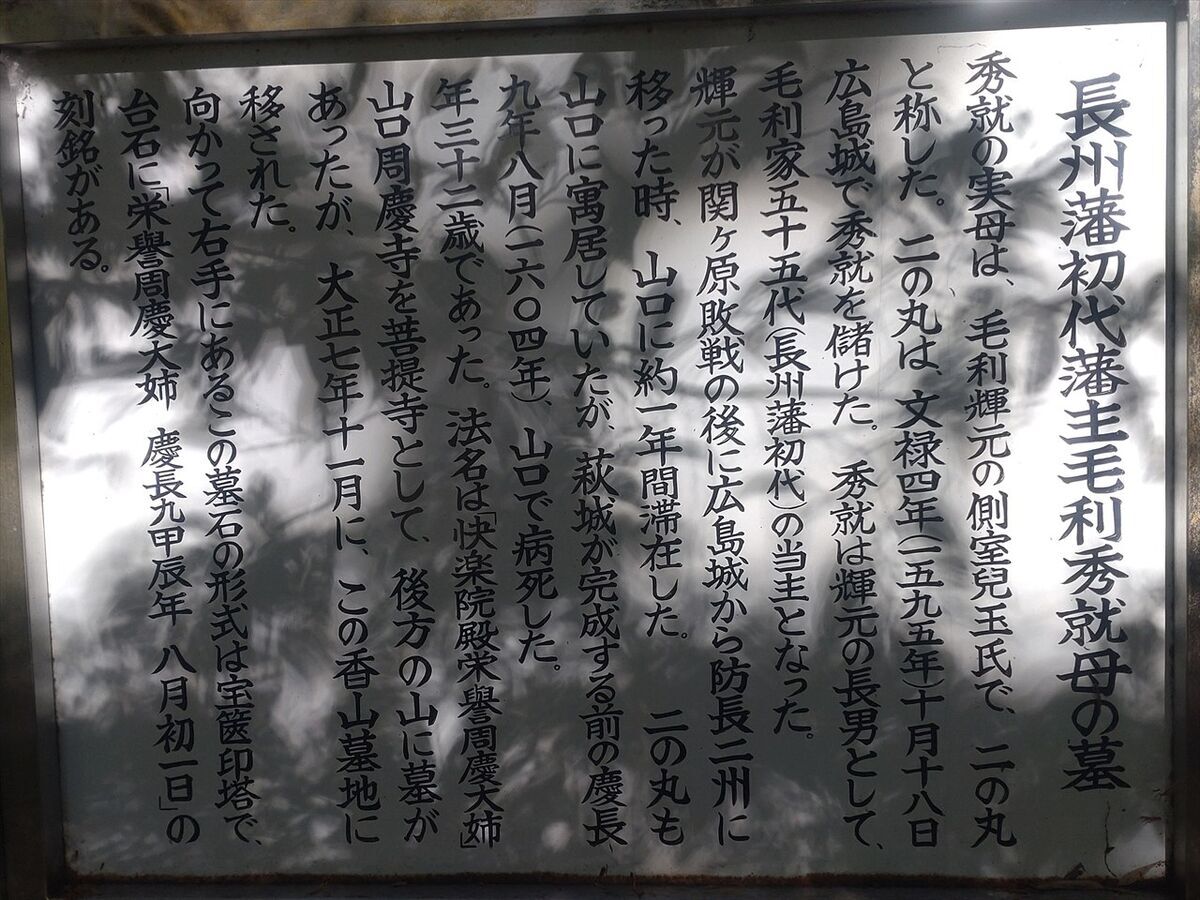 長州藩初代藩主毛利秀就母の墓
秀就の実母は、毛利輝元の側室兒玉氏で、二の丸
と称した。二の丸は、文禄四年(一五九五年)十月十八日
広島城で秀就を儲けた。秀就は輝元の長男として、
毛利家五十五代(長州藩初代)の当主となった。
輝元が関ヶ原敗戦の後に広島城から防長二州に
移った時、山口に約一年間滞在した。二の丸も
山口に寓居していたが、萩城が完成する前の慶長
九年八月(一六〇四年)、山口で病死した。
年三十二歳であった。法名は「快楽院殿栄譽周慶大姉」
山口周慶寺を菩提寺として、後方の山に墓が
あったが、大正七年十一月に、この香山墓地に
移された。
向かって右手にあるこの墓石の形式は宝篋印塔で、
台石に「栄譽周慶大姉 慶長九甲辰年 八月初一日」の
刻銘がある。